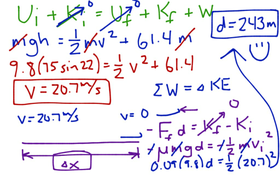 Ui + Ki = Uf + Kf + W
0
0
d = 243 m
mgh = 1/2 mv² + 61.4 m
9.8(75 sin 22) = 1/2 v² + 61.4
V = 20.7 m/s
ΣW = ΔKE
V = 20.7 m/s
V = 0
0
- Ff d = Kf - Ki
- μmg d = - 1/2 m vi²
0.09(9.8) d = 1/2 (20.7)²
Δx